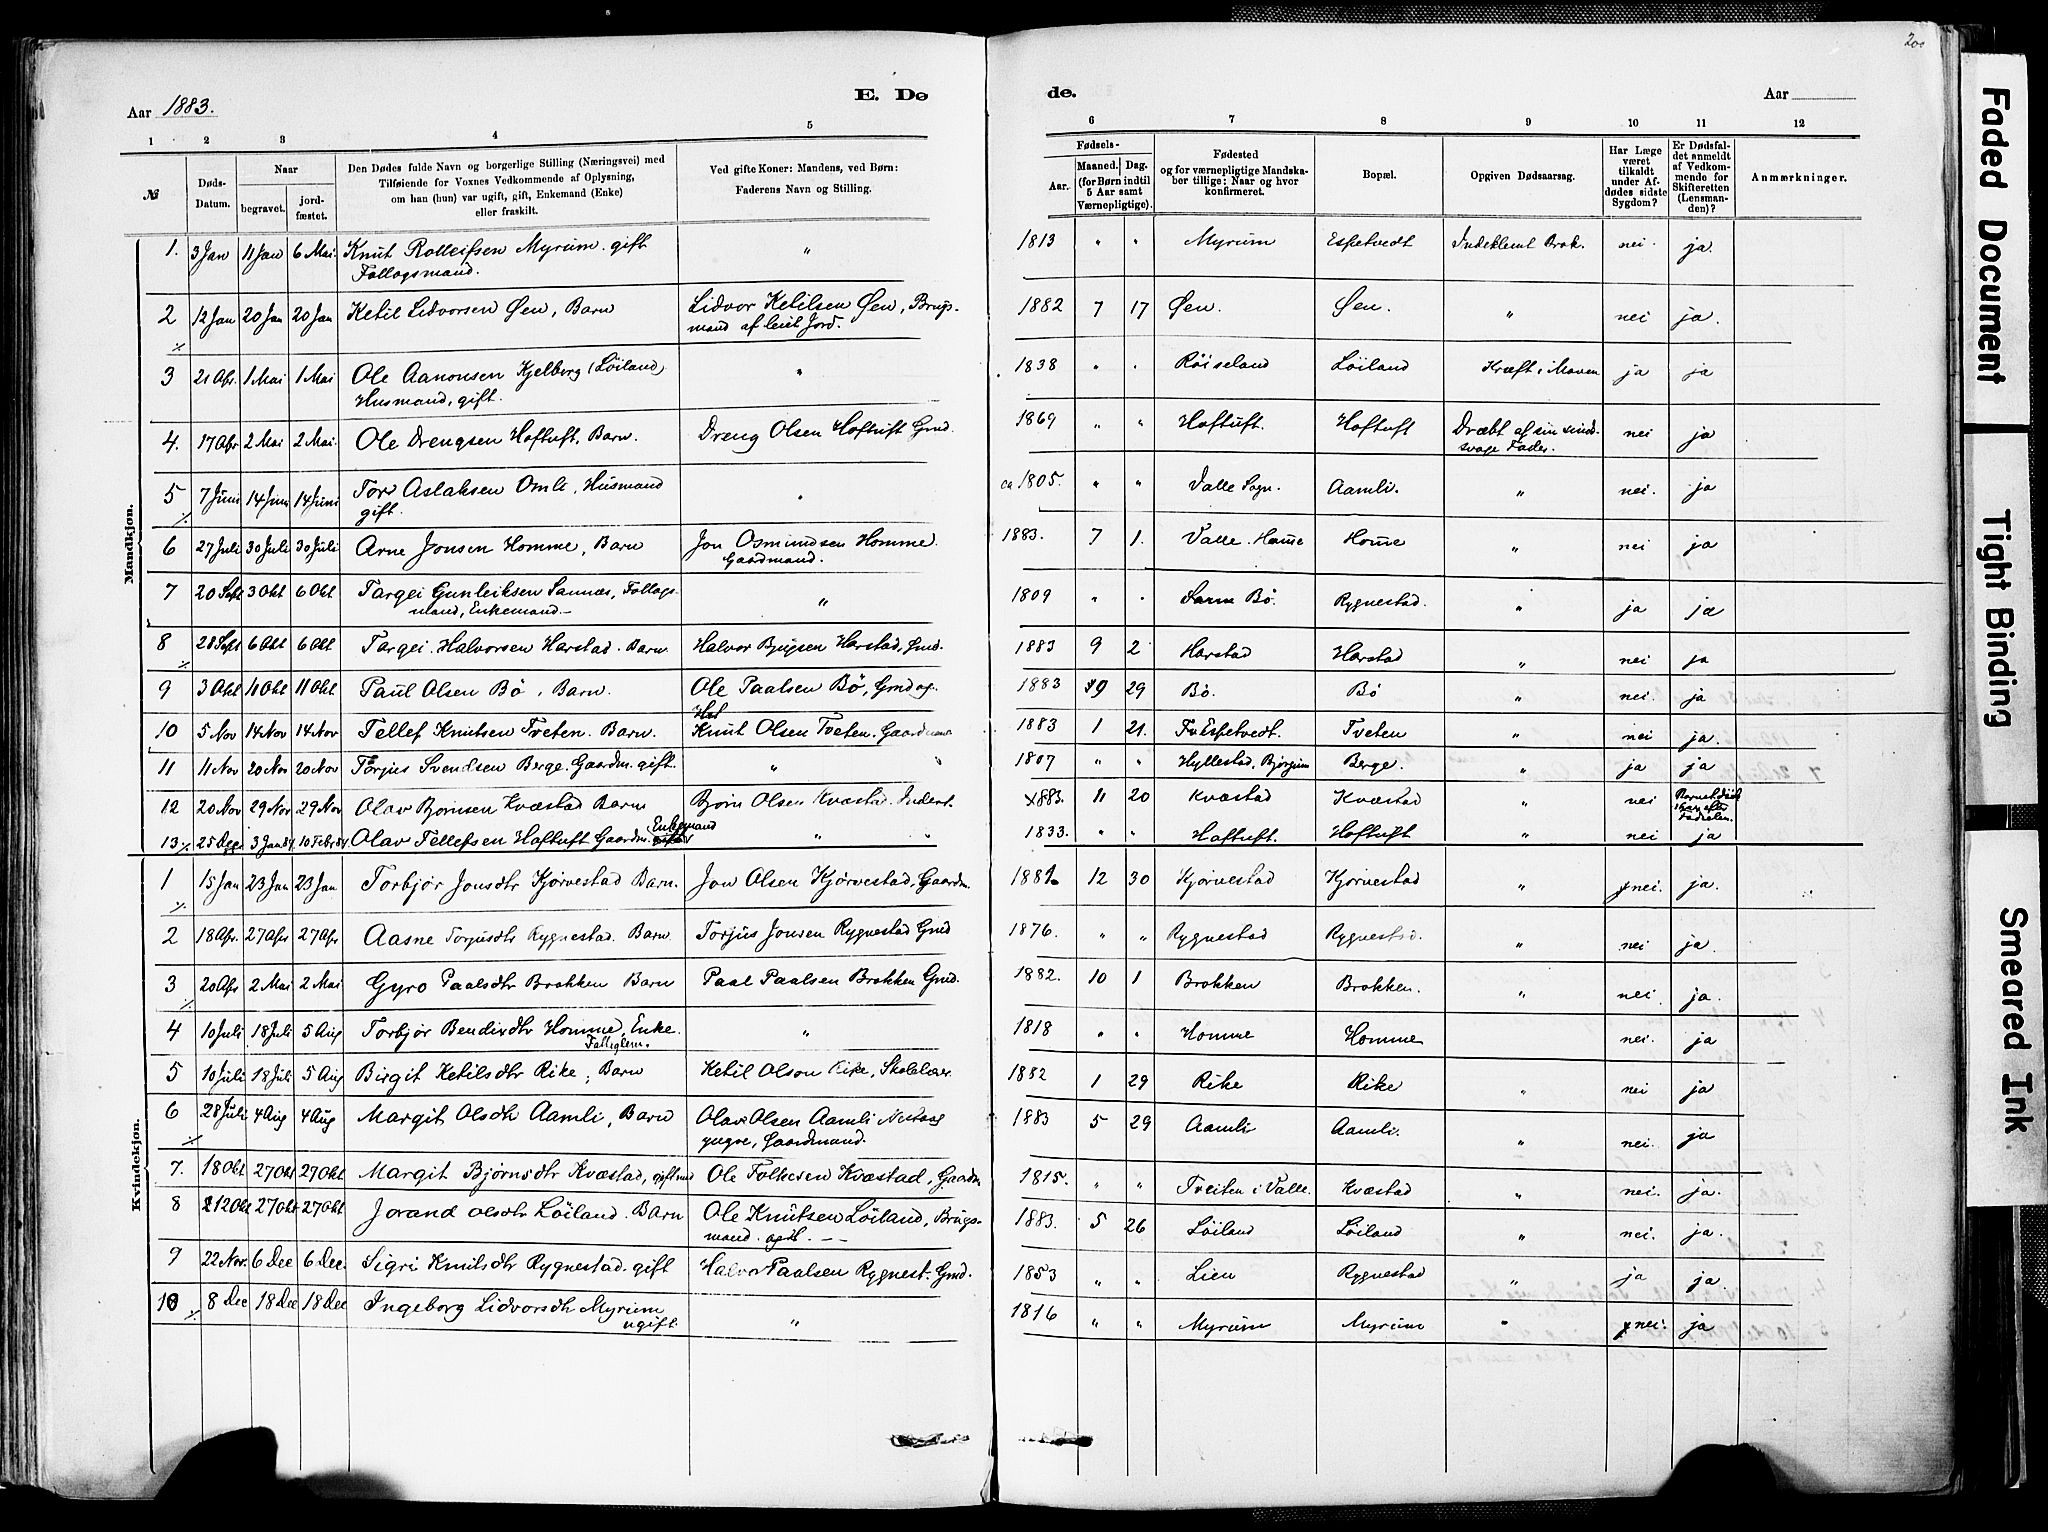 200
Aar 1883.
E. Dø
de.
Aar
1 2 3 4 5 6 7 8 9 10 11 12
№
Døds-Datum.
Naar
begravet.
jord-fæstet.
Den Dødes fulde Navn og borgerlige Stilling (Næringsvei) med
Tilføiende for Voxnes Vedkommende af Oplysning,
om han (hun) var ugift, gift, Enkemand (Enke)
eller fraskilt.
Ved gifte Koner: Mandens, ved Børn:
Faderens Navn og Stilling.
Fødsels-
Aar.
Maaned. Dag.
(for Børn indtil
5 Aar samt
Værnepligtige).
Fødested
og for værnepligtige Mandska-
ber tillige: Naar og hvor
konfirmeret.
Bopæl.
Opgiven Dødsaarsag.
Har Læge
været
tilkaldt
under Af-
dødes sidste
Sygdom?
Er Dødsfal-
det anmeldt
af Vedkom-
mende for
Skifteretten
(Lensman-
den)?
Anmærkninger.
Mandkjøn.
1. 3 Jan 11 Jan 6 Mai Knut Rolleifsen Myrum. gift " 1813 " " Myrum Espetvedt Indeklemt Brok. nei. ja.
Follogsmand.
2 12 Jan 20 Jan 20 Jan Ketil Lidvorsen Øen, Barn Lidvor Ketilsen Øen, Brugs- 1882 7 17 Øen. Øen. " nei ja.
mand af leiet Jord.
3 21 Apr. 1 Mai 1 Mai Ole Aanonsen Kjelberg (Løiland) " 1838 " " Røiseland Løiland Kræft i Maven ja ja
Husmand, gift.
4. 17 Apr 2 Mai 2 Mai. Ole Drengsen Hoftuft, Barn. Dreng Olsen Hoftuft Gmd. 1869 " " Hoftuft. Hoftuft Dræbt af sin sind- nei ja
svage Fader.
5 7 Juni 14 Juni 14 Juni Tor Aslaksen Omli, Husmand " ca 1805. " " Valle Sogn. Aamli. " nei. ja
gift.
6 27 Juli 30 Juli 30 Juli Arne Jonsen Homme, Barn Jon Osmundsen Homme. 1883. 7 1. Valle. Home Home " nei ja
Gaardmand.
7 20 Sept 3 Okt 6 Okt Targei Gunleiksen Sannes, Follogs- " 1809 " " Bø. Rygnestad. " ja ja
mand, Enkemand.
8 28 Sept 6 Okt 6 Okt Targei Halvorsen Harstad. Barn Halvor Bjugsen Harstad, Gmd. 1883 9 2 Harstad Harstad " nei ja
9 3 Okt 11 Okt 11 Okt Paul Olsen Bø, Barn. Ole Paalsen Bø, Gmd og. 1883 9 29 Bø. Bø " nei. ja
10 5 Nov 14 Nov 14 Nov Tellef Knutsen Tveten. Barn. Knut Olsen Tveten. Gaardman 1883 1 21. Espetvedt. Tveten " nei ja.
11 11 Nov 20 Nov 20 Nov Torjus Svendsen Berge. Gaardm. gift. " 1807 " " Hyllestad, Bjørgum Berge. " ja ja
12 20 Nov 29 Nov 29 Nov Olav Bjørnsen Kvæstad Barn Bjørn Olsen Kvæstad. Inderst. 1883. 11 20 Kvæstad Kvæstad " nei
13 25 Dec 3 Jan 84. 10 Febr 84. Olav Tellefsen Hoftuft Gaardm. Enkemand " 1833. " " Hoftuft. Hoftuft " nei ja
Kvindekjøn.
1 15 Jan 23 Jan 23 Jan Torbjør Jonsdtr Kjørvestad Barn. Jon Olsen Kjørvestad, Gaardm. 1881. 12 30 Kjørvestad Kjørvestad " nei. ja.
2 18 Apr. 27 Apr 27 Apr Aasne Torjusdtr Rygnestad. Barn Torjus Jonsen Rygnestad Gmd 1876. " " Rygnestad Rygnestad. " nei ja.
3 20 Apr 2 Mai 2 Mai Gyro Paalsdtr Brokken Barn Paal Paalsen Brokken Gmd. 1882. 10 1 Brokken Brokken. " nei. ja.
4 10 Juli 18 Juli 5 Aug Torbjør Bendixdtr Homme, Enke. " 1818 " " Homme Homme " nei. ja
Fattiglem.
5 10 Juli 18 Juli 5 Aug Birgit Ketilsdtr Rike, Barn Ketil Olson Rike, Skolelærer. 1882 1 29 Rike Rike " nei ja
6 28 Juli 4 Aug 4 Aug Margit Olsdtr Aamli, Barn Olav Olsen Aamli Nistog 1883 5 29 Aamli Aamli. " nei. ja
yngre, Gaardmand.
7. 18 Okt 27 Okt 27 Okt Margit Bjørnsdtr Kvæstad, gift med Ole Folkesen Kvæstad, Gaardm 1815. " " Treiten i Valle. Kvæstad " nei. ja.
8 21 Okt 27 Okt 27 Okt Jorand Olsdtr Løiland. Barn Ole Knutsen Løiland, Brugs- 1883. 5 26 Løiland Løiland " nei. ja.
mand.
9 22 Nov. 6 Dec 6 Dec. Sigri Knutsdtr Rygnestad. gift Halvor Paalsen Rygnest. Gmd. 1853 " " Lien Rygnestad " ja ja.
10 8 Dec 18 Dec 18 Dec Ingeborg Lidvorsdtr Myrum " 1816 " " Myrum Myrum " nei. ja
ugift.
Faded Document
Tight Binding
Smeared Ink